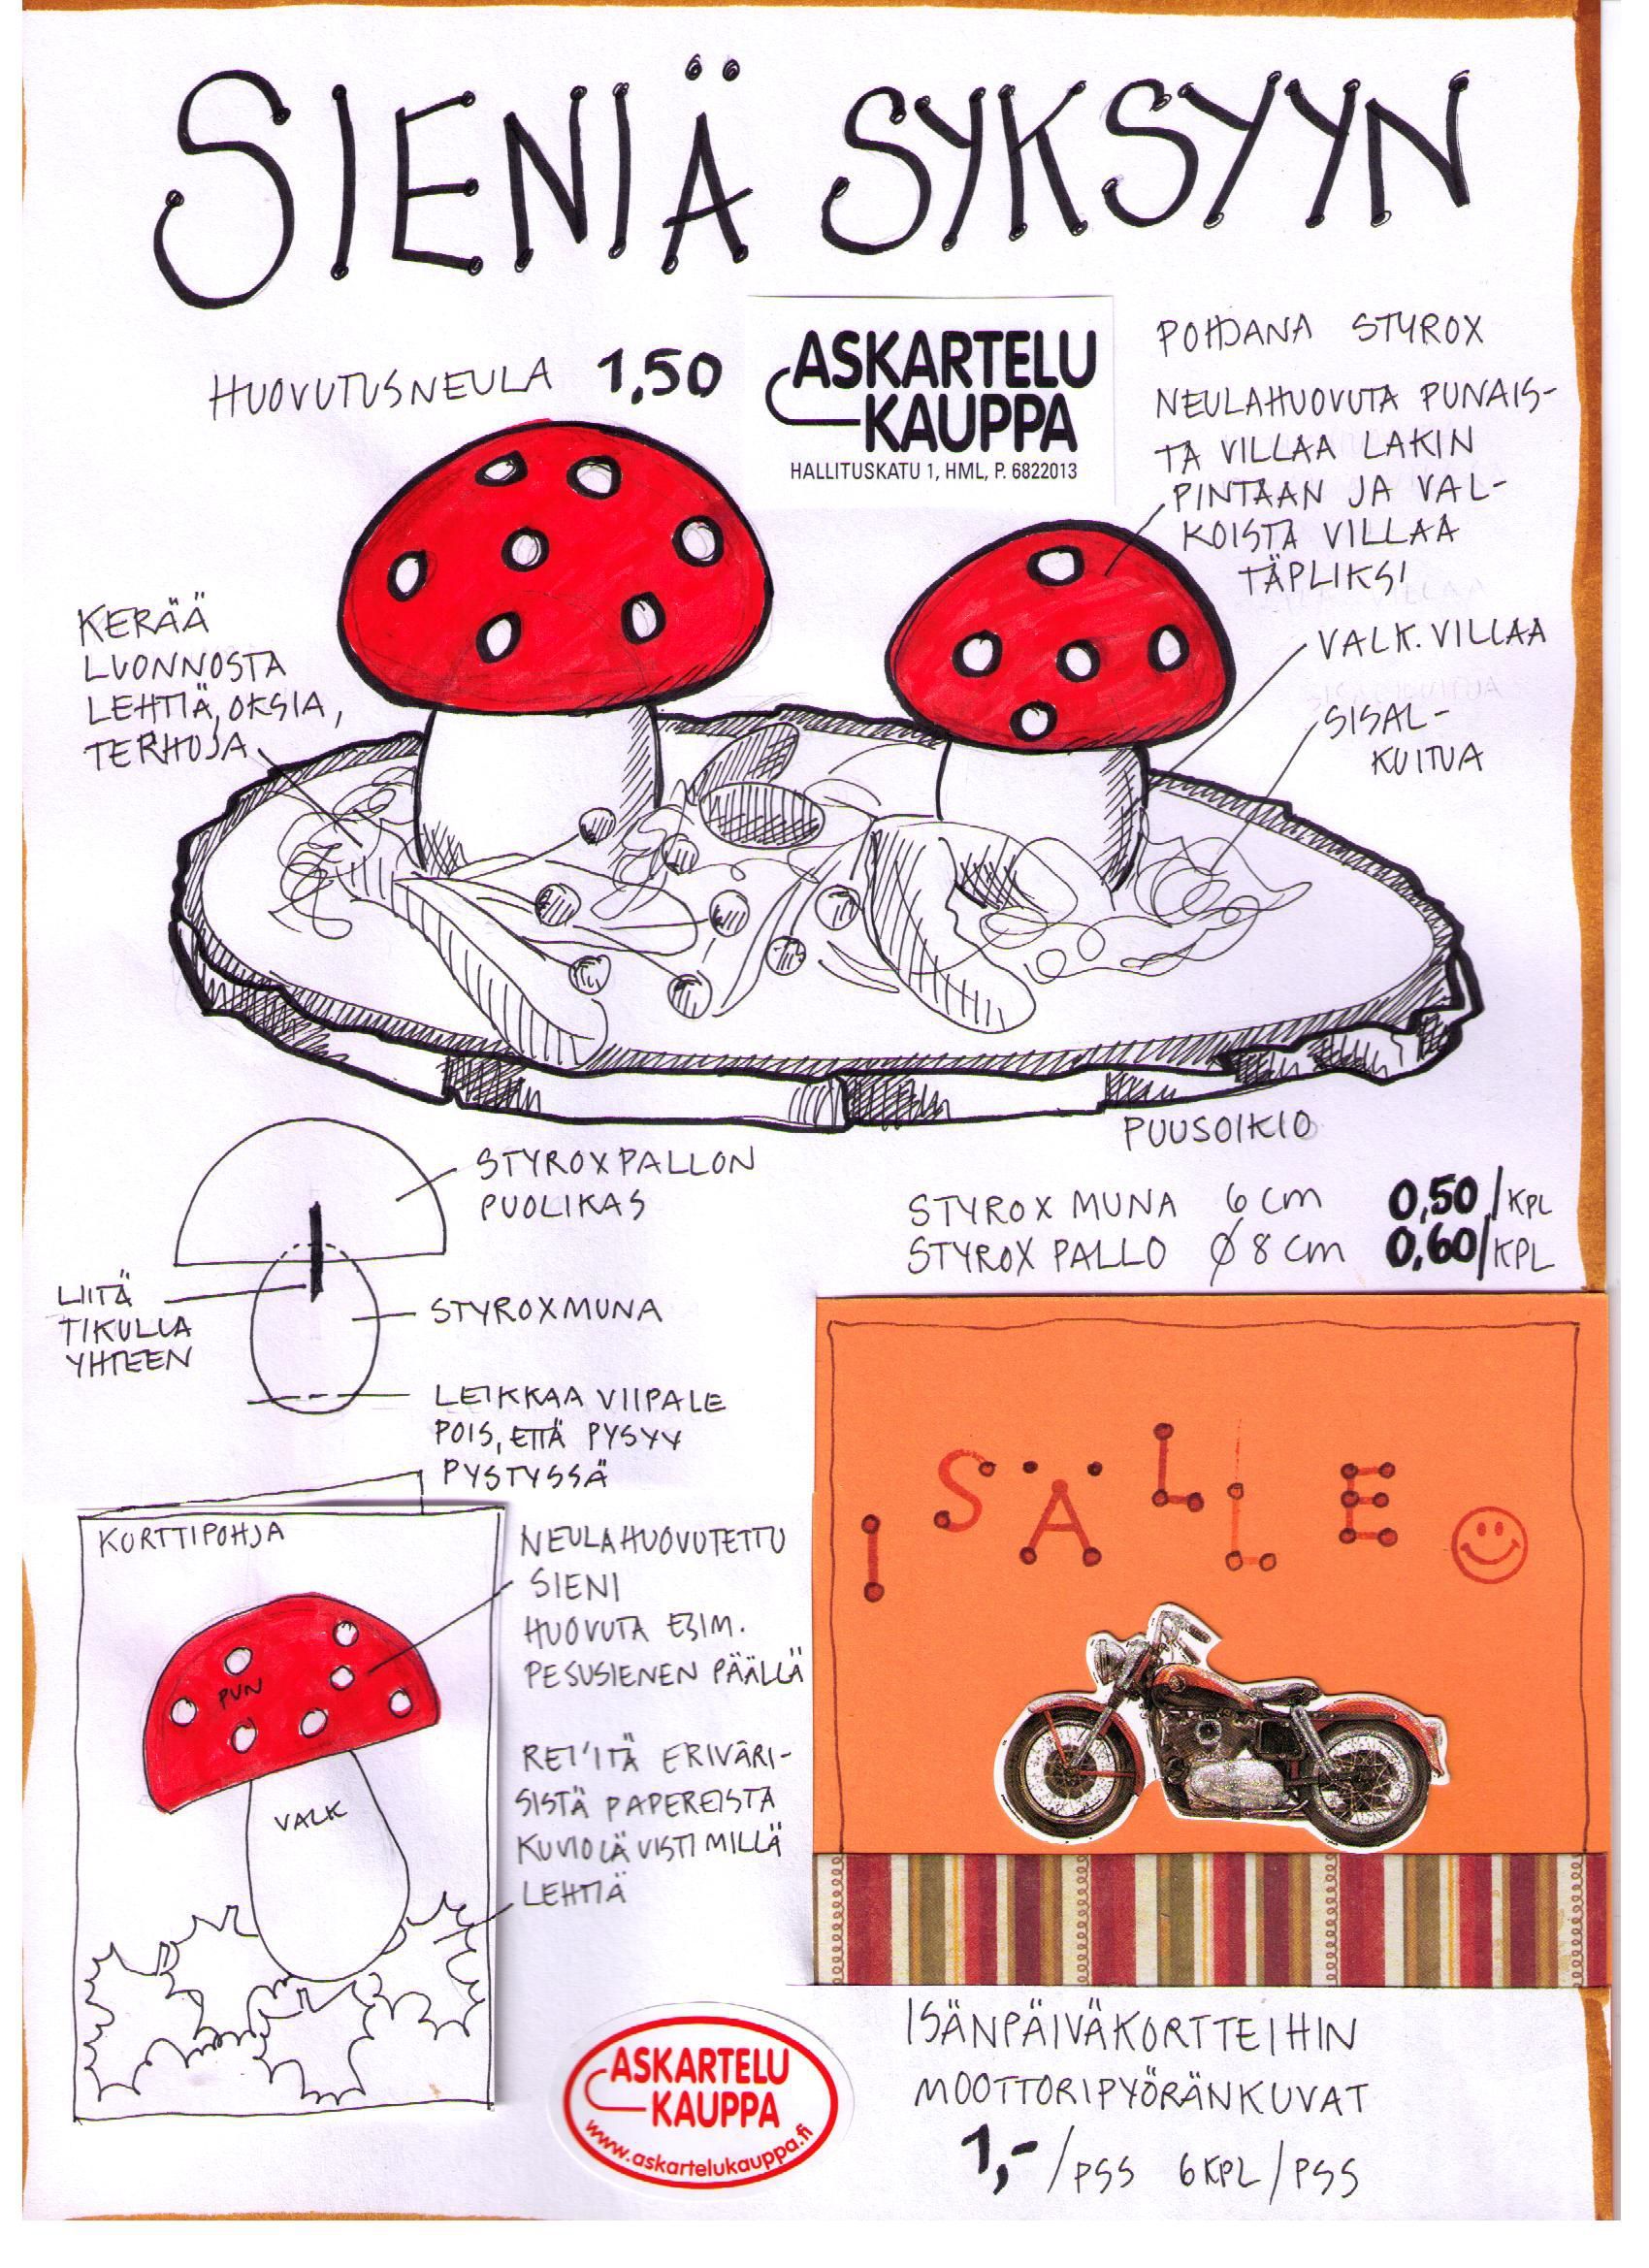 SIENIÄ SYKSYYN
HUOVUTUSNEULA 1,50
ASKARTELU
KAUPPA
HALLITUSKATU 1, HML, P. 6822013
POHJANA STYROX
NEULAHUOVUTA PUNAIS-
TA VILLAA LAKIN
PINTAAN JA VAL-
KOISTA VILLAA
TÄPLIKSI
VALK. VILLAA
SISAL-
KUITUA
KERÄÄ
LUONNOSTA
LEHTIÄ, OKSIA,
TERHOJA
PUUSOIKIO
STYROX MUNA 6 cm 0,50/KPL
STYROX PALLO Ø 8 cm 0,60/KPL
STYROXPALLON
PUOLIKAS
LIITÄ
TIKULLA
YHTEEN
STYROXMUNA
LEIKKAA VIIPALE
POIS, ETTÄ PYSYY
PYSTYSSÄ
KORTTIPOHJA
PUN
VALK
NEULAHUOVUTETTU
SIENI
HUOVUTA ESIM.
PESUSIENEN PÄÄLLÄ
REI'ITÄ ERIVÄRI-
SISTÄ PAPEREISTA
KUVIOLÄVISTIMILLÄ
LEHTIÄ
ISÄLLE
ISÄNPÄIVÄKORTTEIHIN
MOOTTORIPYÖRÄNKUVAT
1,-/PSS 6KPL/PSS
ASKARTELU
KAUPPA
www.askartelukauppa.fi